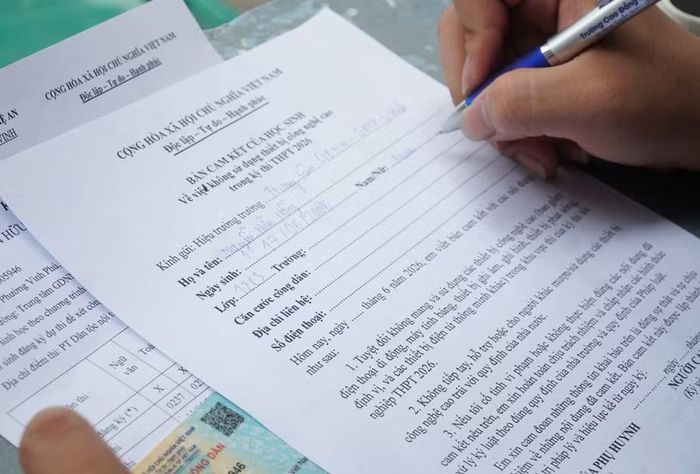 Trường Cao Đẳng
CỘNG HÒA XÃ HỘI CHỦ NGHĨA VIỆT NAM
Độc lập – Tự do – Hạnh phúc
CỘNG HÒA XÃ HỘI CHỦ NGHĨA VIỆT NAM
Độc lập – Tự do – Hạnh phúc
BẢN CAM KẾT CỦA HỌC SINH
Về việc không sử dụng thiết bị công nghệ cao
trong kỳ thi THPT 2026
Kính gửi: Hiệu trưởng trường
Họ và tên: Nguyễn Nam/Nữ: Nam
Ngày sinh: 17/06/2008
Lớp: Trường:
Căn cước công dân:
Địa chỉ liên hệ:
Số điện thoại:
Hôm nay, ngày ...... tháng 6 năm 2026, em viết bản cam kết với các nội dung
như sau:
1. Tuyệt đối không mang và sử dụng các thiết bị công nghệ cao (bao gồm:
điện thoại di động, máy tính bảng, thiết bị ghi âm, ghi hình, thiết bị phát sóng,
định vị, và các thiết bị điện tử thông minh khác) trong khu vực thi của kỳ thi tốt
nghiệp THPT 2026.
2. Không tiếp tay, hỗ trợ hoặc cho người khác mượn/sử dụng các thiết bị
công nghệ cao trái với quy định của nhà nước.
3. Nếu tôi có tình vi phạm hoặc không thực hiện đúng các nội dung đã
cam kết nêu trên, em xin hoàn toàn chịu trách nhiệm và chấp nhận các hình thức
xử lý kỷ luật theo đúng quy định của nhà trường và quy định của pháp luật.
Em xin cam đoan những thông tin khai báo trên là đúng sự thật
về những nội dung đã cam kết. Bản cam kết này được
pháp lý và hiệu lực kể từ ngày ký.
NGƯỜI
PHỤ HUYNH
Ệ AN
VINH
N HỮU
05946
Phường Vinh Phú
Trung tâm GDN
sinh học theo chương trình
sinh đăng ký dự thi để xét công
Địa chỉ điểm thi: PT Dân tộc nội
Ngữ
văn
Toán
X X
ký (*)
0237 02
NGHĨA VIỆT NAM
CÔNG DÂN